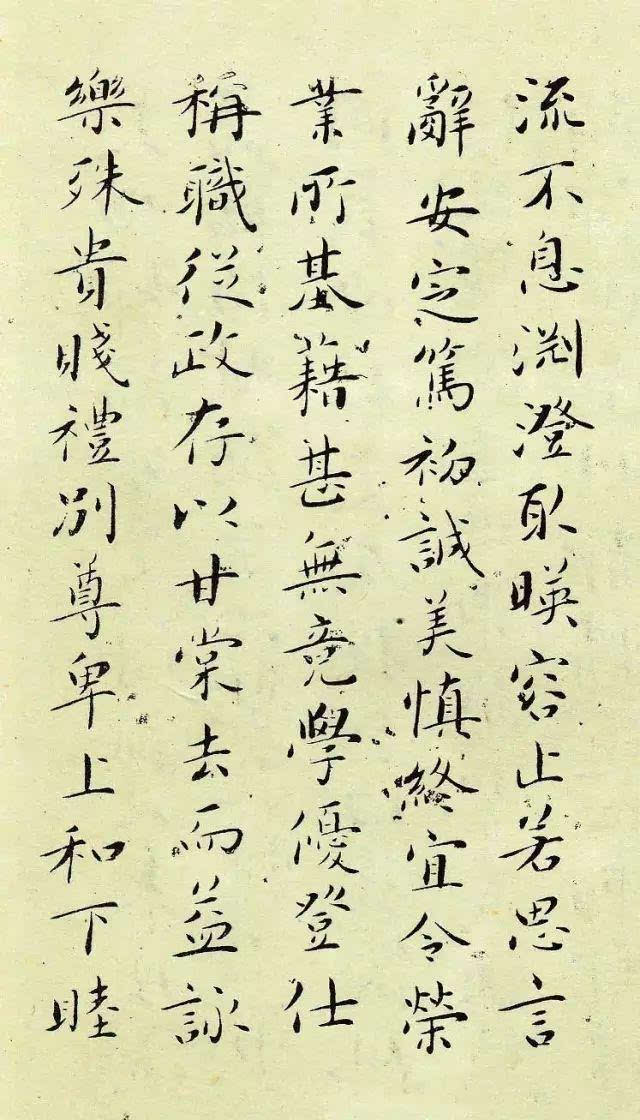 流不息淵澄取暎容止若思言
辭安定篤初誠美慎終宜令榮
業所基藉甚無竟學優登仕
稱職從政存以甘棠去而益詠
樂殊貴賤禮別尊卑上和下睦